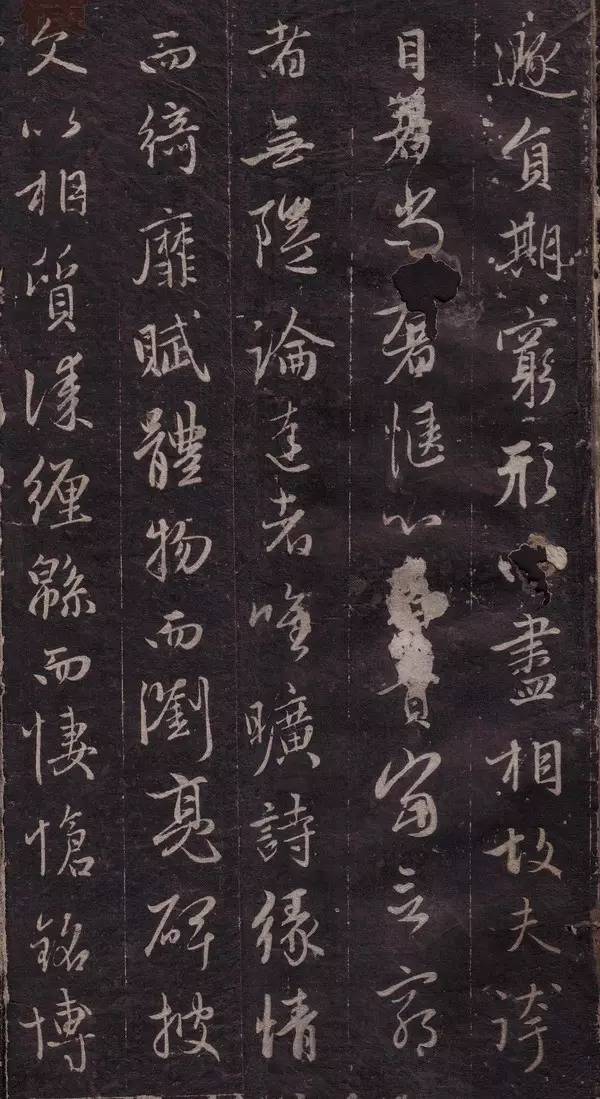 遯員期窮形盡相故夫誇
目者尚奢愜心者貴當言窮
者無隘論達者唯曠詩緣情
而綺靡賦體物而瀏亮碑披
文以相質誄纏緜而悽愴銘博